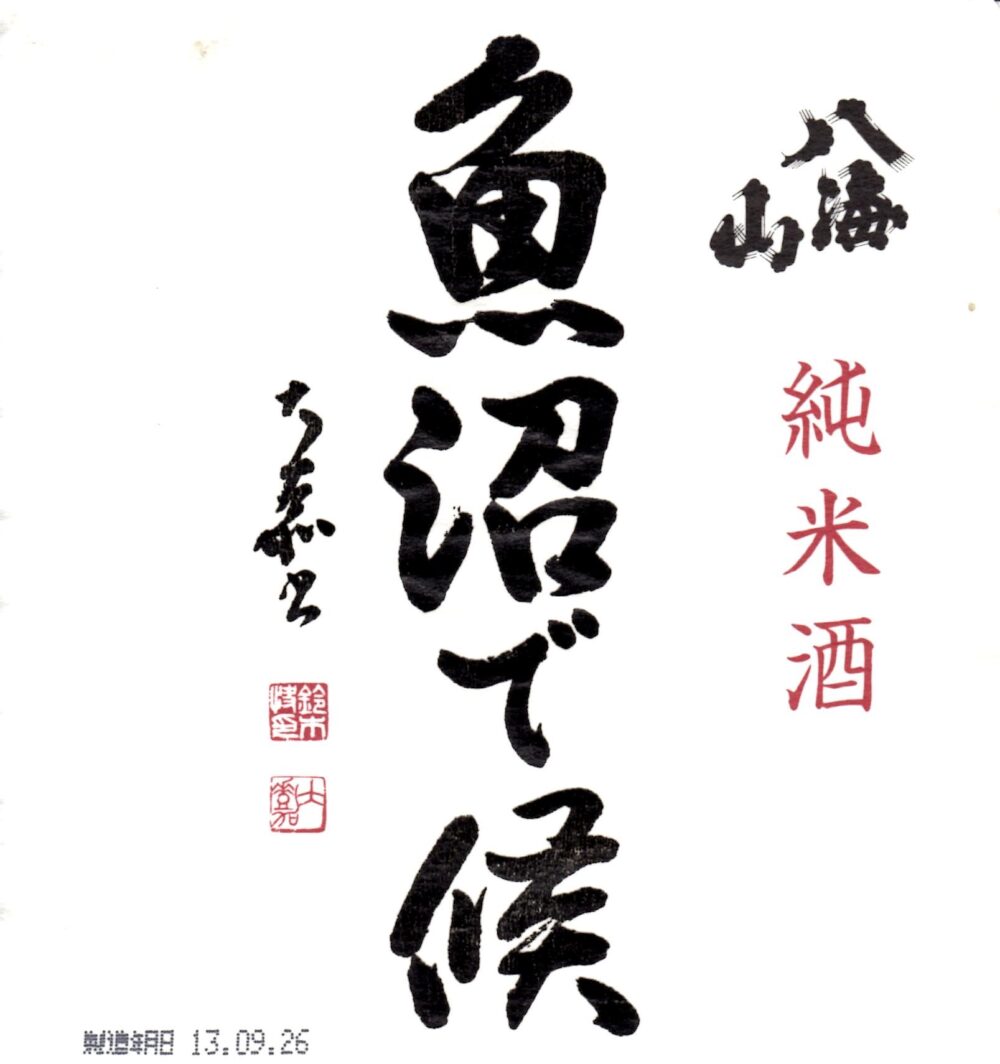 八海山
純米酒
魚沼で候
大嘉书
鈴木
大嘉
製造年月日 13.09.26